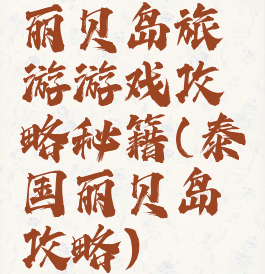 丽贝岛旅
游游戏攻
略秘籍(泰
国丽贝岛
攻略)